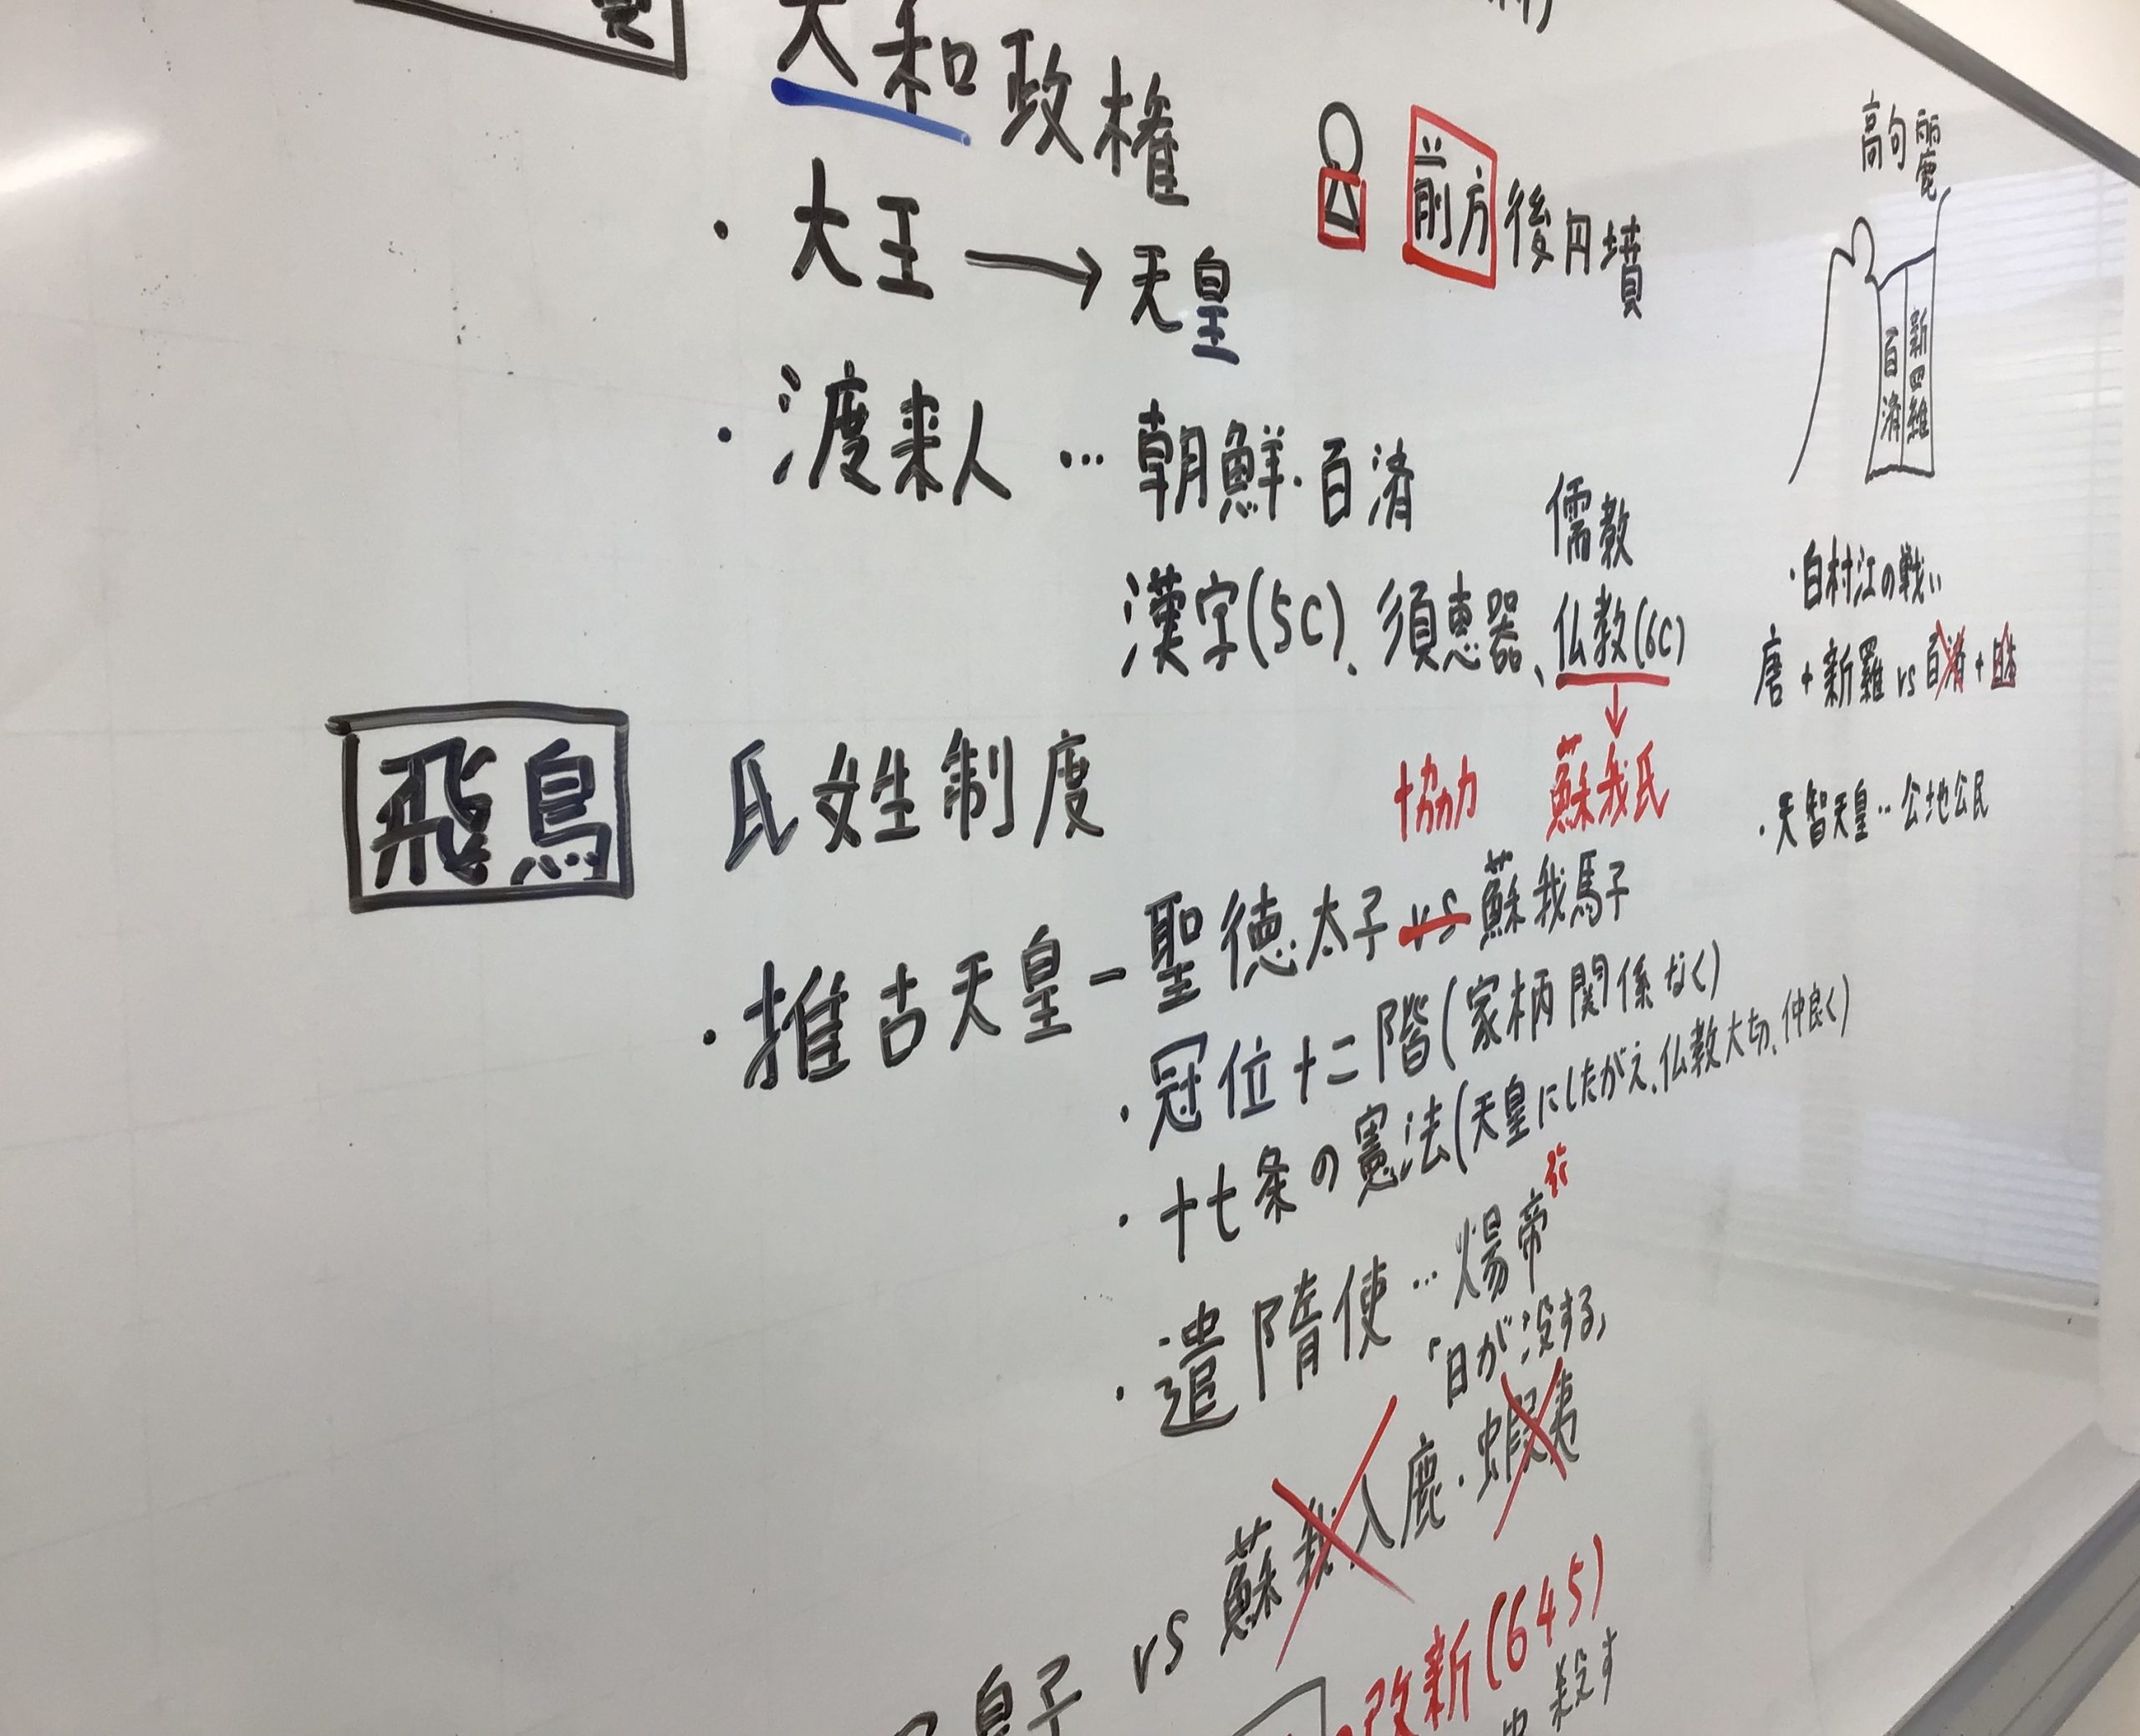 大和政権
前方後円墳
・大王→天皇
・渡来人…朝鮮・百済
儒教
漢字(5C)、須恵器、仏教(6C)
↓
協力 蘇我氏
飛鳥 氏姓制度
・推古天皇－聖徳太子 vs 蘇我馬子
・冠位十二階(家柄関係なく)
・十七条の憲法(天皇にしたがえ、仏教大切、仲良く)
・遣隋使…煬帝
「日が没する」
皇子 vs 蘇我入鹿・蝦夷
改新(645)
殺す
高句麗
新羅
百済
・白村江の戦い
唐+新羅 vs 百済+日本
・天智天皇…公地公民